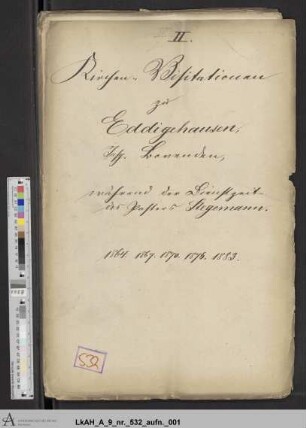 II.
Kirchen-Visitationen
zu
Eddigehausen,
Insp. Bovenden,
während der Dienstzeit
des Pastors Stegemann.
1864. 1867. 1870. 1876. 1883.
532
LkAH_A_9_nr._532_aufn._001